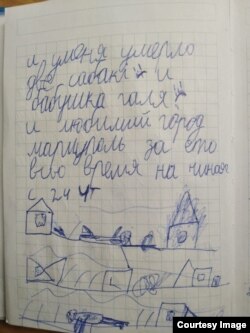 и уменя умерло
две сабаки и
бабушка галя
и любимий город
мариуполь за ето
время на чиная
с 24 чт
Courtesy Image